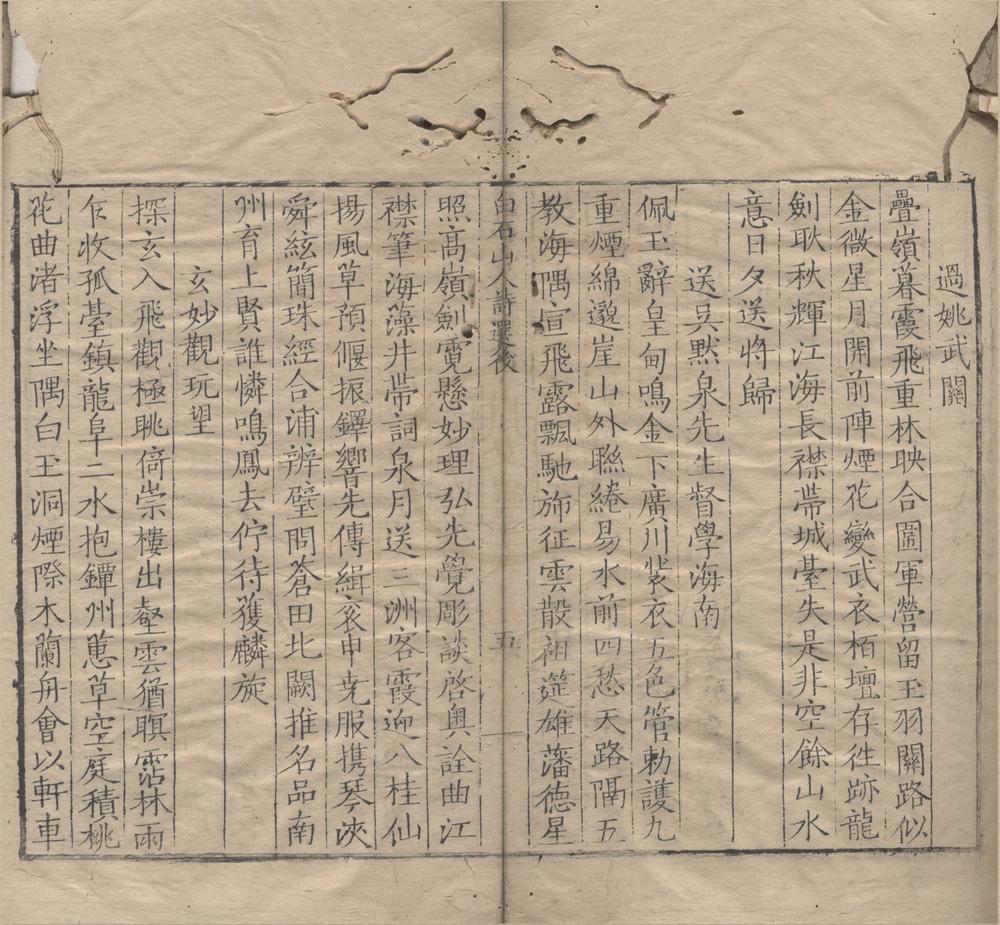 過姚武關
疊嶺暮霞飛重林映合圍軍營留玉羽關路似
金微星月開前陣煙花變武衣栢壇存徃跡龍
劍耿秋輝江海長襟帶城臺失是非空餘山水
意日夕送將歸
送吳黙泉先生督學海南
佩玉辭皇甸鳴金下廣川裳衣五色管勅護九
重煙綿邈崖山外聯綣易水前四愁天路隔五
教海隅宣飛露飄馳斾征雲散祖筵雄藩德星
白石山人詩選後
五
照高嶺劍霓懸妙理弘先覺彫談啓奥詮曲江
襟筆海藻井帶詞泉月送三洲客霞迎八桂仙
揚風草預偃振鐸響先傳緝亥申尭服携琴浹
舜絃簡珠經合浦辨璧問蒼田北闕推名品南
州育上賢誰憐鳴鳳去佇待獲麟旋
玄妙觀玩望
探玄入飛觀極眺倚崇樓出壑雲猶暝霑林雨
乍收孤臺鎮龍阜二水抱鐔州蕙草空庭積桃
花曲渚浮坐隅白玉洞煙際木蘭舟會以軒車